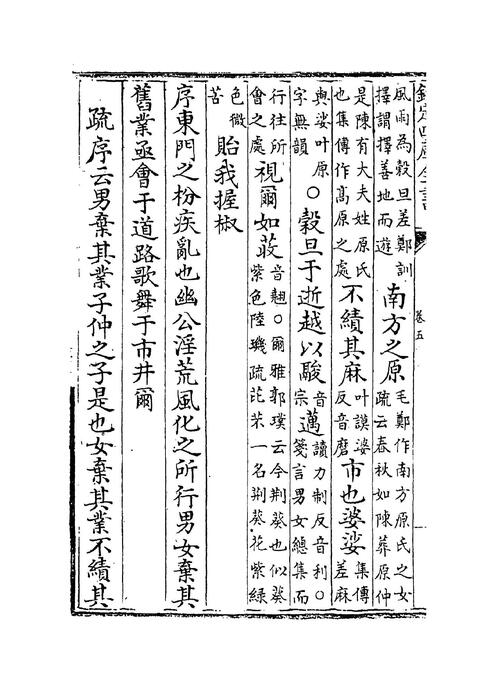 欽定四庫全書
卷五
風雨為穀旦差鄭訓
擇謂擇善地而遊
南方之原
毛鄭作南方原氏之女
疏云春秋如陳葬原仲
是陳有大夫姓原氏
也集傳作高原之處
不績其麻
叶謨婆
反音磨
市也婆娑
集傳
差麻
與娑叶原
字無韻
○穀旦于逝越以鬷
音
宗
邁
讀力制反音利○
箋言男女總集而
行往所
會之處
視爾如荍
音翹○爾雅郭璞云今荆葵也似葵
紫色陸璣疏芘芣一名荆葵花紫綠
色微
苦
貽我握椒
序東門之枌疾亂也幽公淫荒風化之所行男女棄其
舊業亟會于道路歌舞于市井爾
疏序云男棄其業子仲之子是也女棄其業不績其